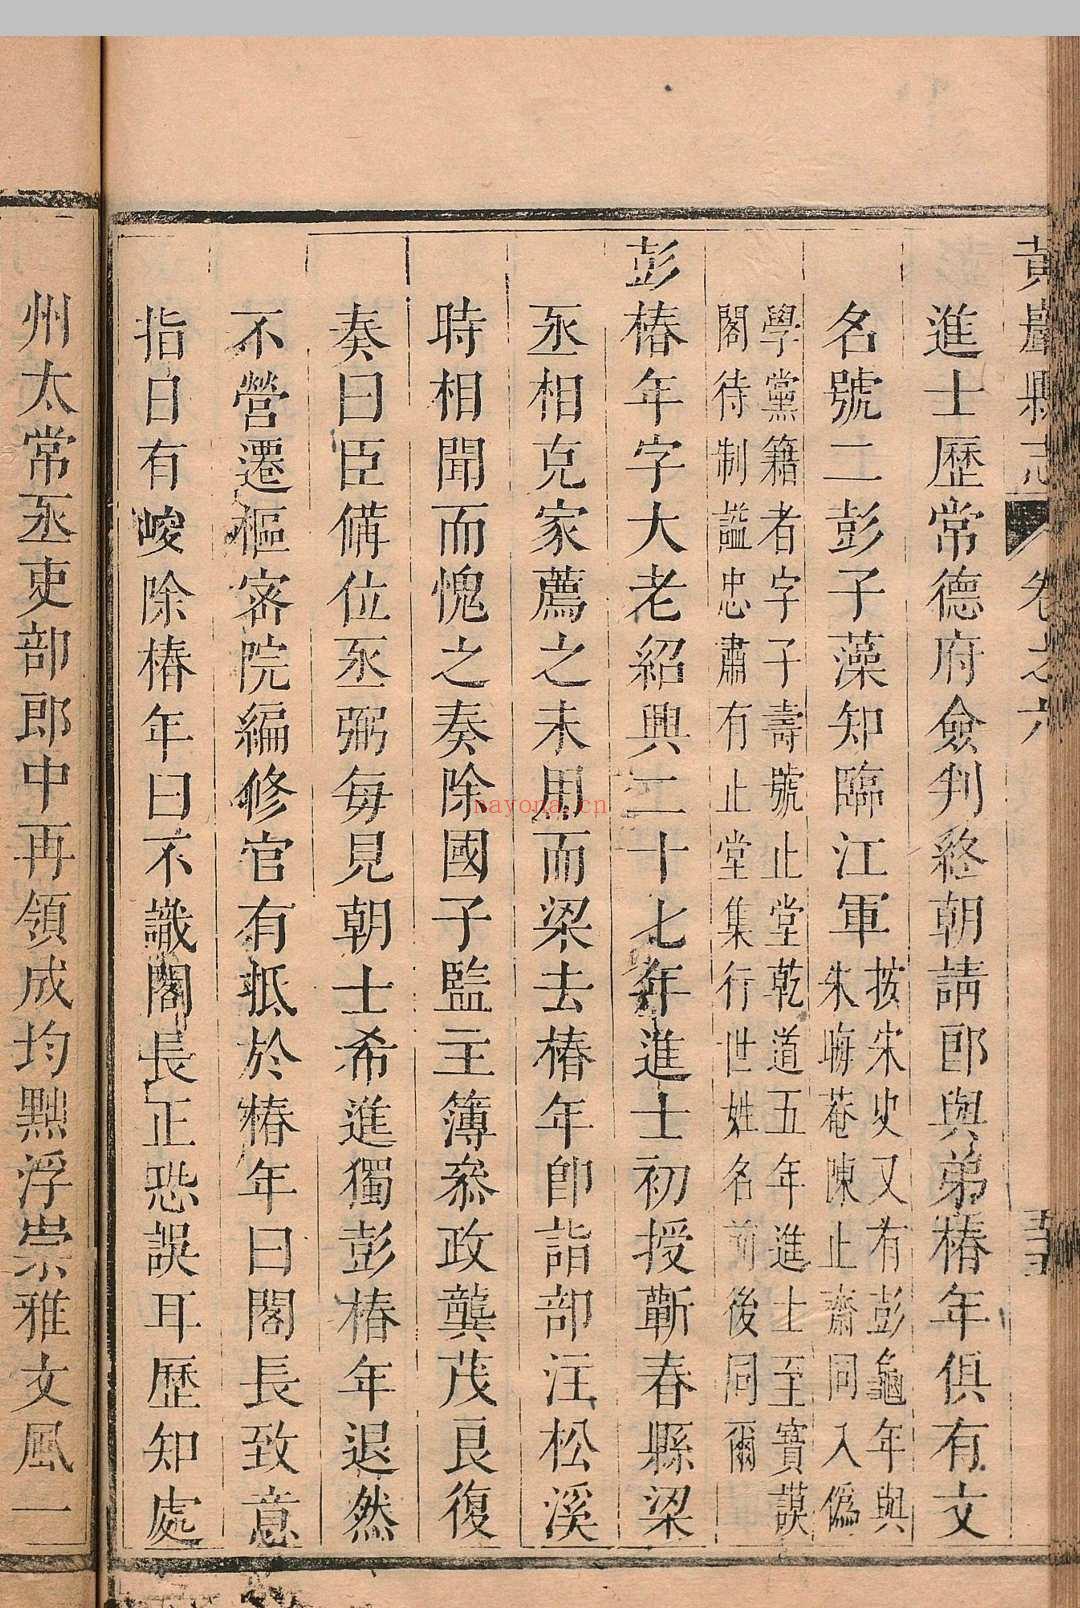 黃巖縣志 卷之六
進士歷常德府僉判終朝請郎與弟椿年俱有文
名號二彭子藻知臨江軍按宋史又有彭龜年與
朱晦菴陳止齋同入偽
學黨籍者字子壽號止堂乾道五年進士至寶謨
閣待制謚忠肅有止堂集行世姓名前後同爾
彭椿年字大老紹興二十七年進士初授蘄春縣梁
丞相克家薦之未用而梁去椿年卽詣部注松溪
時相聞而愧之奏除國子監主簿叅政龔茂良復
奏曰臣備位丞弼每見朝士希進獨彭椿年退然
不營遷樞密院編修官有抵於椿年曰閣長致意
指日有峻除椿年曰不識閣長正恐誤耳歷知處
州太常丞吏部郎中再領成均黜浮崇雅文風一
nayona.cn